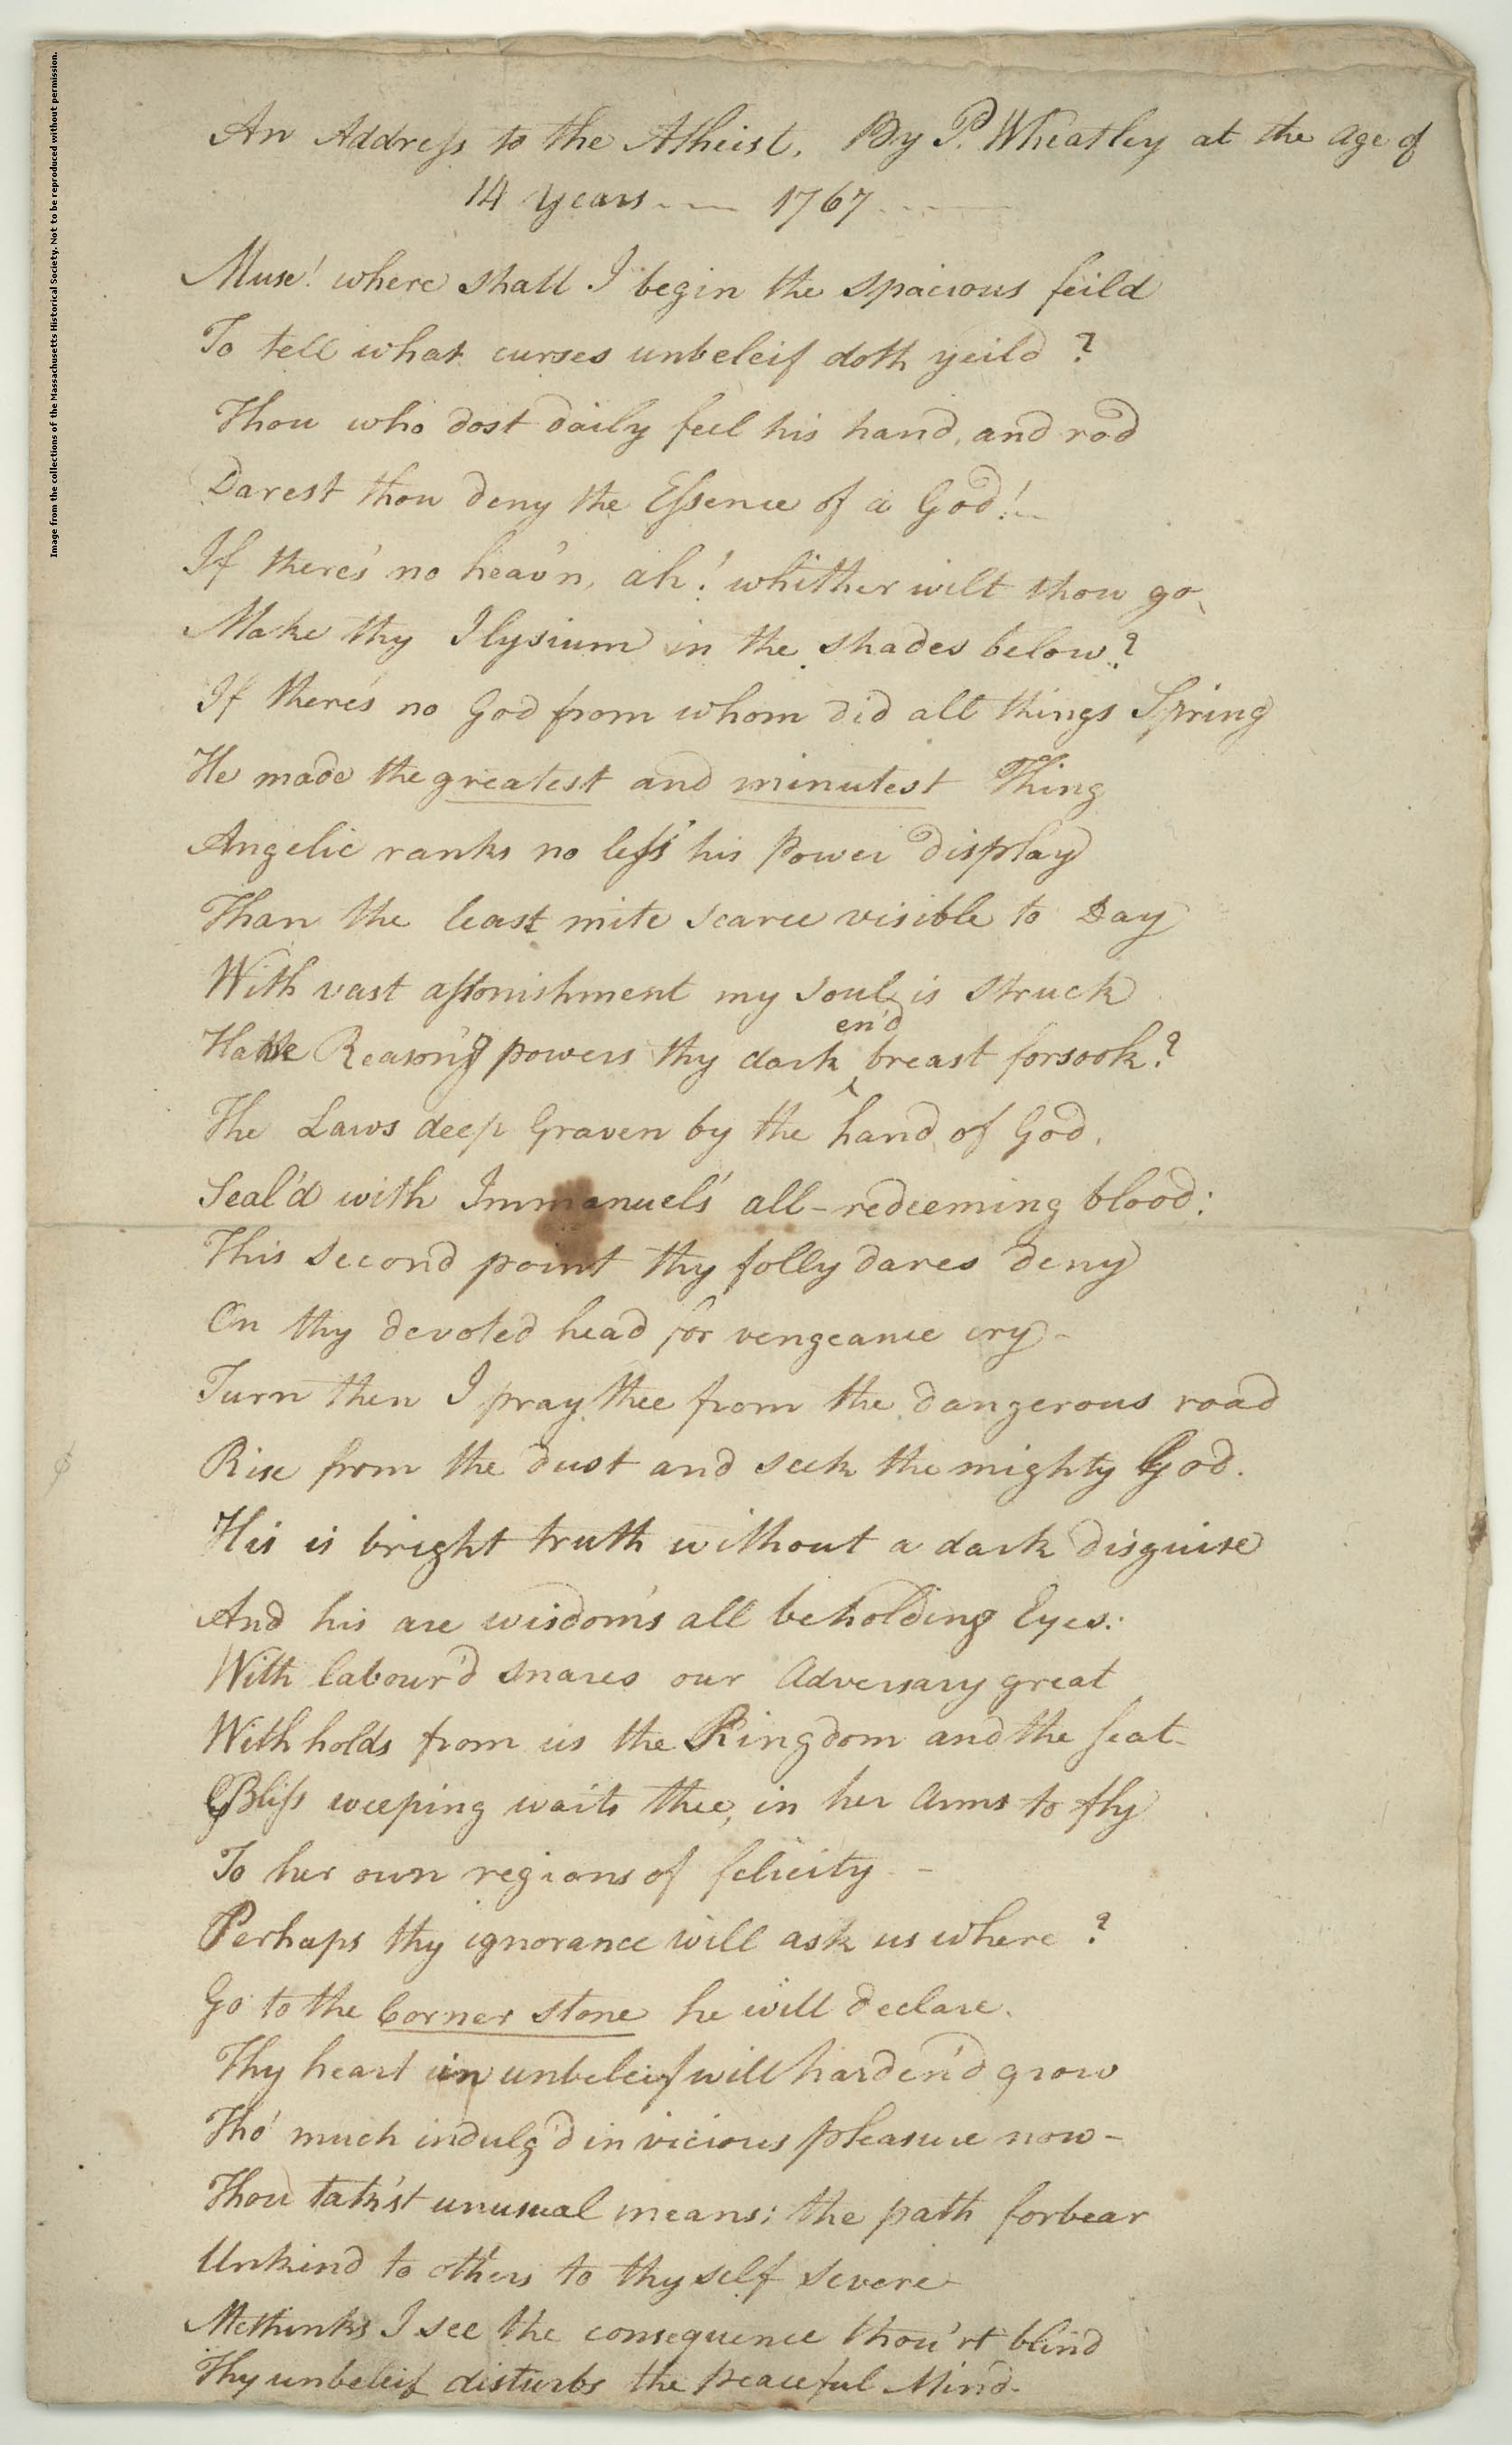 Image from the collections of the Massachusetts Historical Society. Not to be reproduced without permission.
An Address to the Atheist. By P. Wheatley at the age of
14 years ---- 1767 ----
Muse! where shall I begin the spacious feild
To tell what curses unbeleif doth yeild?
Thou who dost daily feel his hand, and rod
Darest thou deny the Essence of a God!--
If there's no heav'n, ah! whither wilt thou go
Make thy Ilysium in the shades below?
If there's no God from whom did all things Spring
He made the greatest and minutest Thing
Angelic ranks no less his Power display
Than the least mite scarce visible to Day
With vast astonishment my soul is struck
Have Reason'g powers thy dark^en'd breast forsook?
The Laws deep Graven by the hand of God,
Seal'd with Immanuel's all-redeeming blood:
This second point thy folly dares deny
On thy devoted head for vengeance cry-
Turn then I pray thee from the dangerous road
Rise from the dust and seek the mighty God.
His is bright truth without a dark disguise
And his are wisdom's all beholding Eyes:
With labour'd snares our Adversary great
With holds from us the Kingdom and the seat-
Bliss weeping waits thee, in her Arms to fly
To her own regions of felicity--
Perhaps thy ignorance will ask us where?
Go to the Corner stone he will declare.
Thy heart in unbeleif will harden'd grow
Tho' much indulg'd in vicious pleasure now-
Thou tak'st unusual means; the path forbear
Unkind to others to thyself severe-
Methinks I see the consequence thou'rt blind
Thy unbeleif disturbs the peaceful Mind.